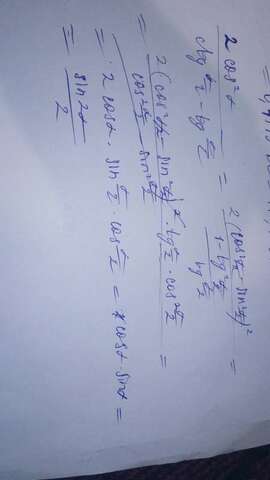 2 cos² α / (ctg α/2 - tg α/2) = 2 (cos² α/2 - sin² α/2)² / ((1 - tg² α/2) / tg α/2) =
= 2 (cos² α/2 - sin² α/2)² tg α/2 · cos² α/2 / (cos² α/2 - sin² α/2) =
= 2 cos α · sin α/2 · cos α/2 = cos α · sin α =
= sin 2α / 2